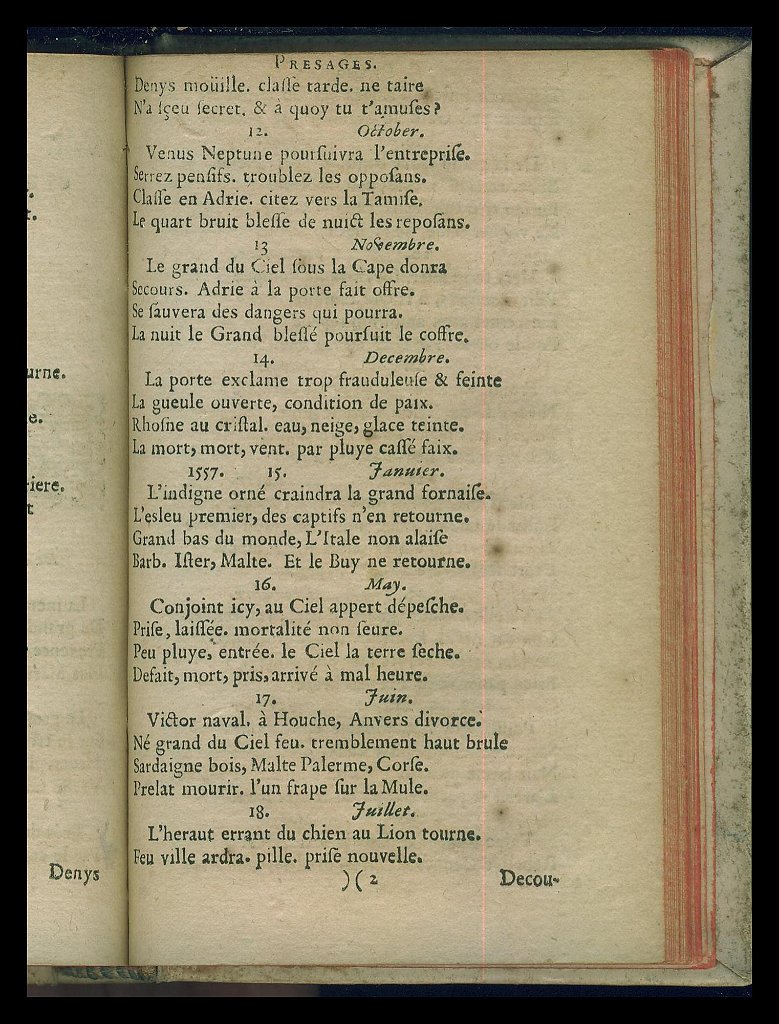 urne.
e.
iere.
t
Denys
PRESAGES.
Denys moüille. claſſe tarde. ne taire
N'a ſçeu ſecret, & à quoy tu t'amuſes?
12. October.
Venus Neptune pourſuivra l'entrepriſe.
Serrez penſifs. troublez les oppoſans.
Claſſe en Adrie. citez vers la Tamiſe,
Le quart bruit bleſſe de nuict les repoſans.
13 November.
Le grand du Ciel ſous la Cape donra
Secours. Adrie à la porte fait offre.
Se ſauvera des dangers qui pourra.
La nuit le Grand bleſſé pourſuit le coffre.
14. Decembre.
La porte exclame trop frauduleuſe & feinte
La gueule ouverte, condition de paix.
Rhoſne au criſtal. eau, neige, glace teinte.
La mort, mort, vent. par pluye caſſé faix.
1557. 15. Januier.
L'indigne orné craindra la grand fornaiſe.
L'esleu premier, des captifs n'en retourne.
Grand bas du monde, L'Itale non alaiſe
Barb. Iſter, Malte. Et le Buy ne retourne.
16. May.
Conjoint icy, au Ciel appert dépeſche.
Priſe, laiſſée. mortalité non ſeure.
Peu pluye, entrée. le Ciel la terre ſeche.
Defait, mort, pris, arrivé à mal heure.
17. Juin.
Victor naval. à Houche, Anvers divorce.
Né grand du Ciel feu. tremblement haut brule
Sardaigne bois, Malte Palerme, Corſe.
Prelat mourir. l'un frape ſur la Mule.
18. Juillet.
L'heraut errant du chien au Lion tourne.
Feu ville ardra. pille. priſe nouvelle.
)( 2 Decou-